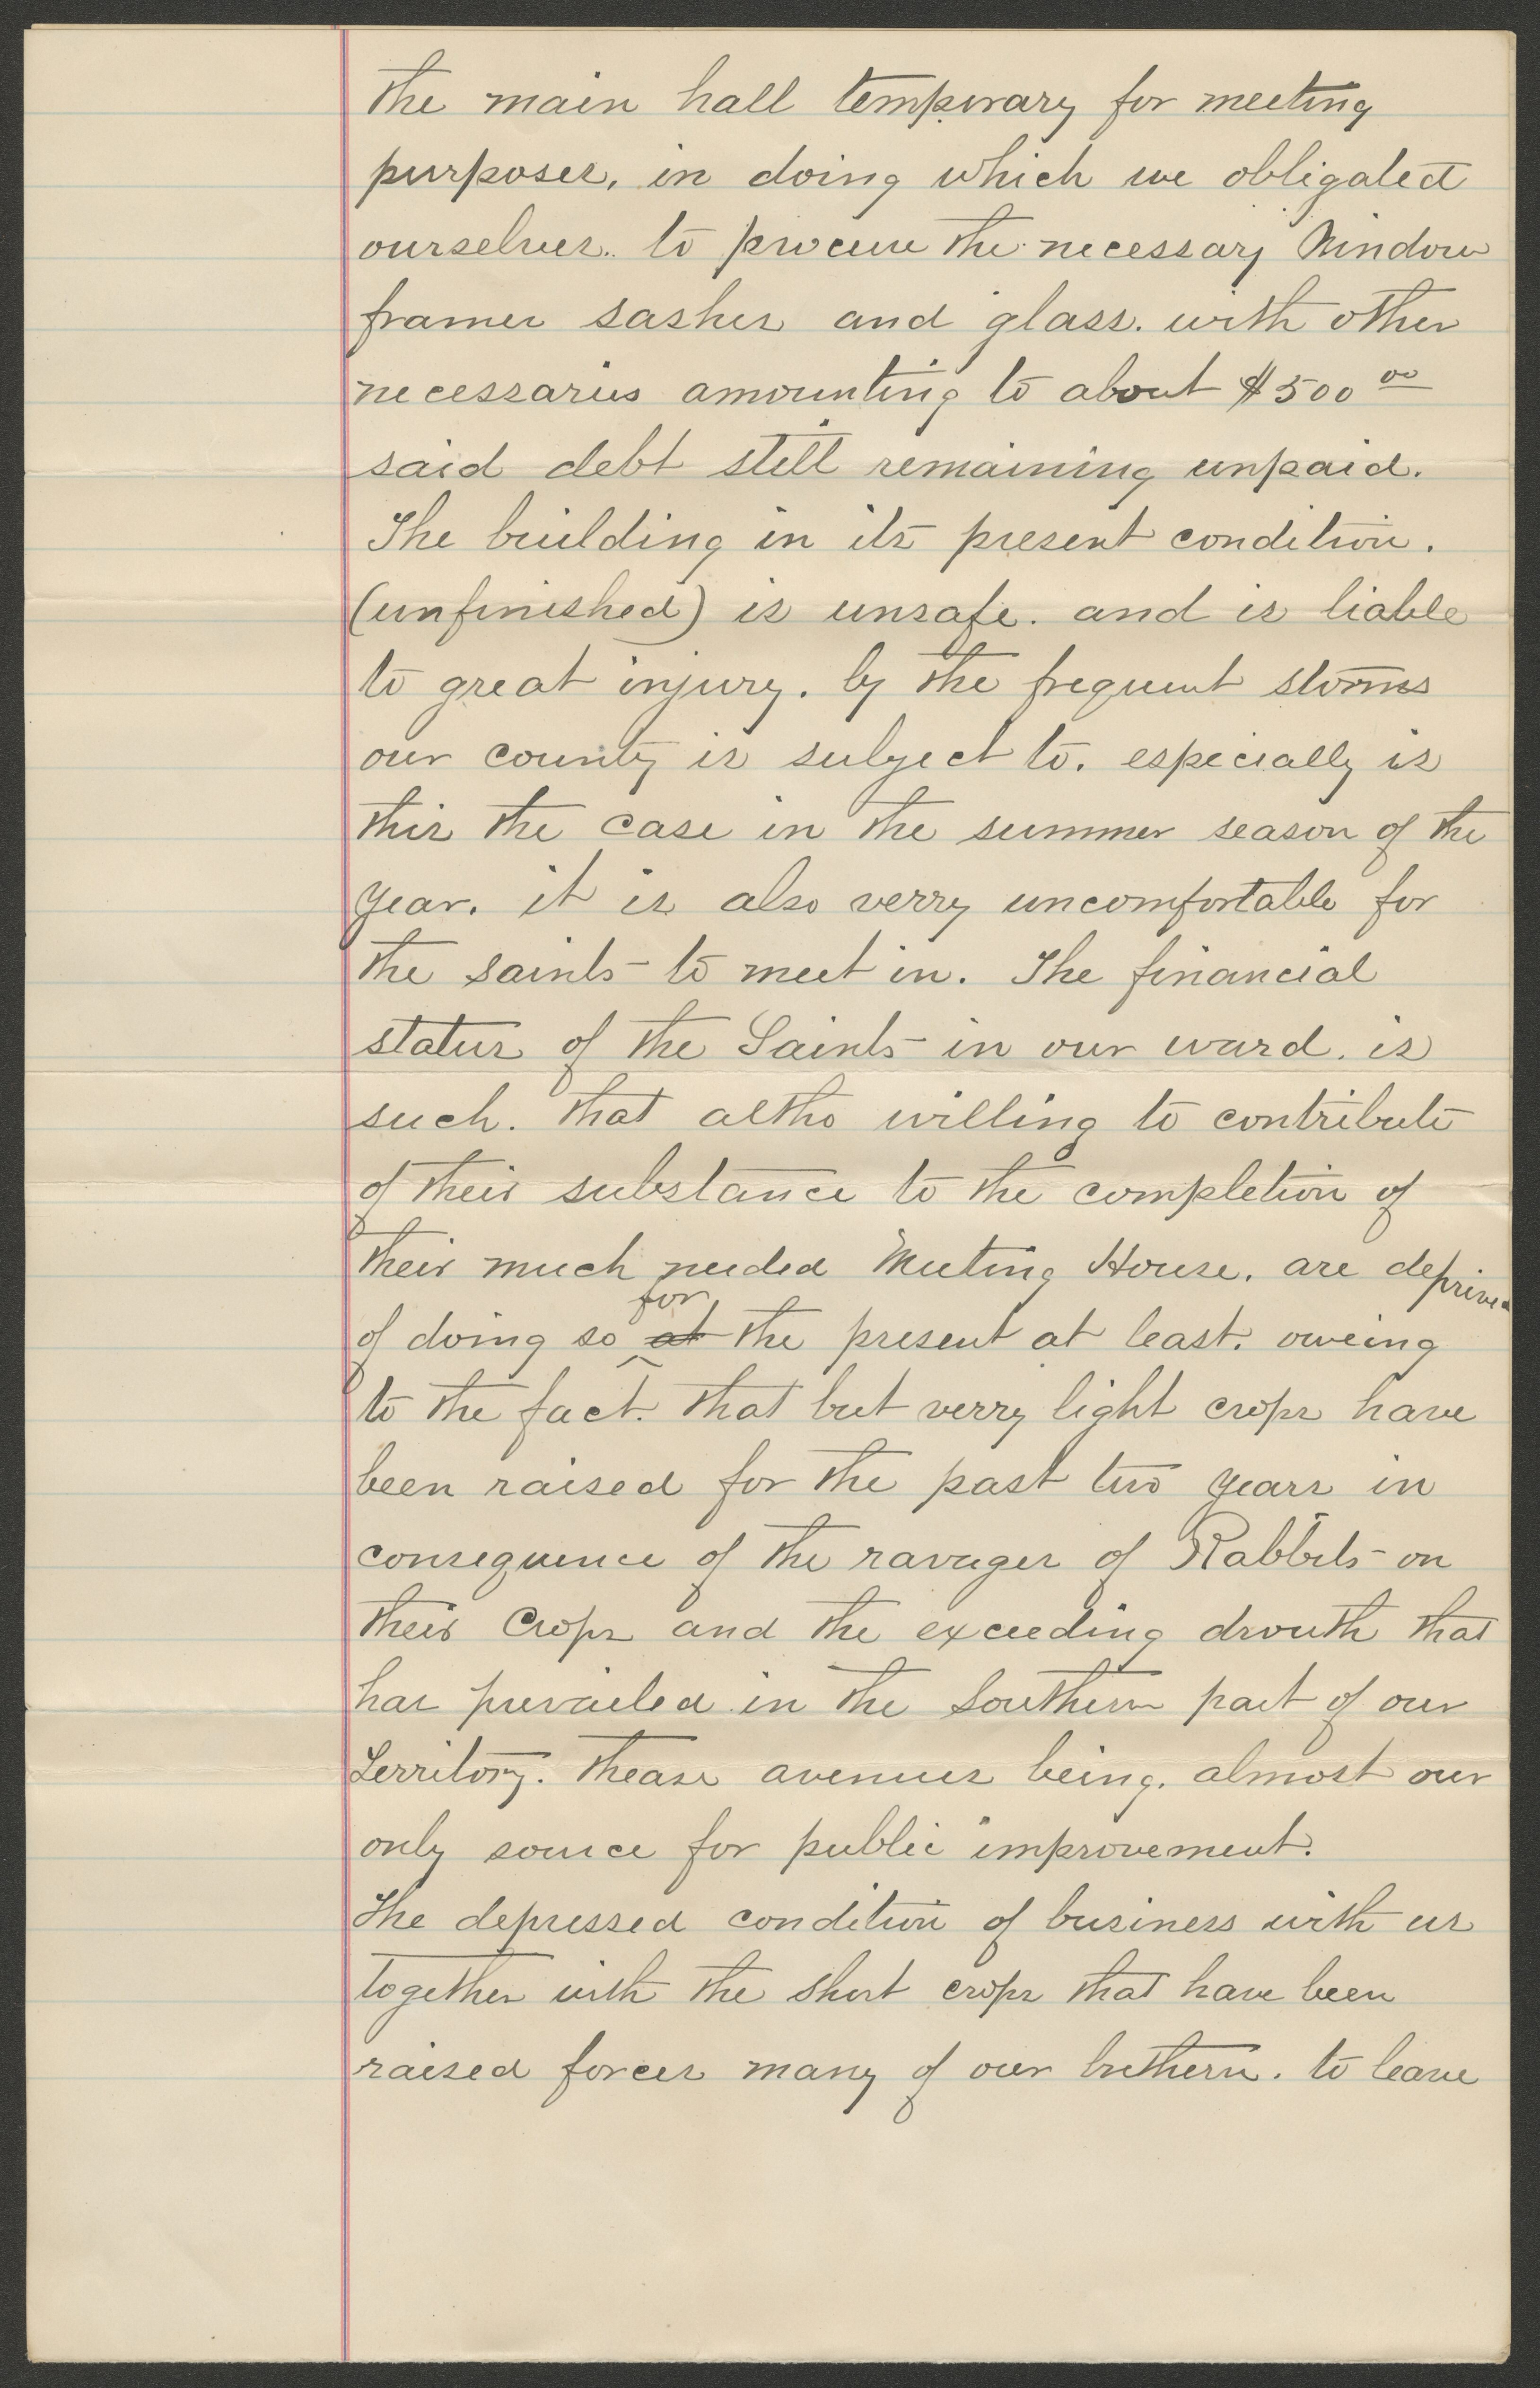 the main hall temporary for meeting
purposes, in doing which we obligated
ourselves. to procure the necessary Window
frames sashes and glass. with other
necessaries amounting to about $500 00
said debt still remaining unpaid.
The building in its present condition.
(unfinished) is unsafe. and is liable
to great injury. by the frequent storms
our county is subject to. especially is
this the case in the summer season of the
year. it is also verry uncomfortable for
the saints to meet in. The financial
status of the Saints in our ward. is
such. that altho willing to contribute
of their substance to the completion of
their much needed Meeting House. are deprived
of doing so at for the present at least. oweing
to the fact. that but verry light crops have
been raised for the past two years in
consequence of the ravages of Rabbits on
their Crops and the exceeding drouth that
has prevailed in the Southern part of our
Territory. thease avenues being. almost our
only source for public improvement.
The depressed condition of business with us
together with the short crops that have been
raised forces many of our brethern. to leave